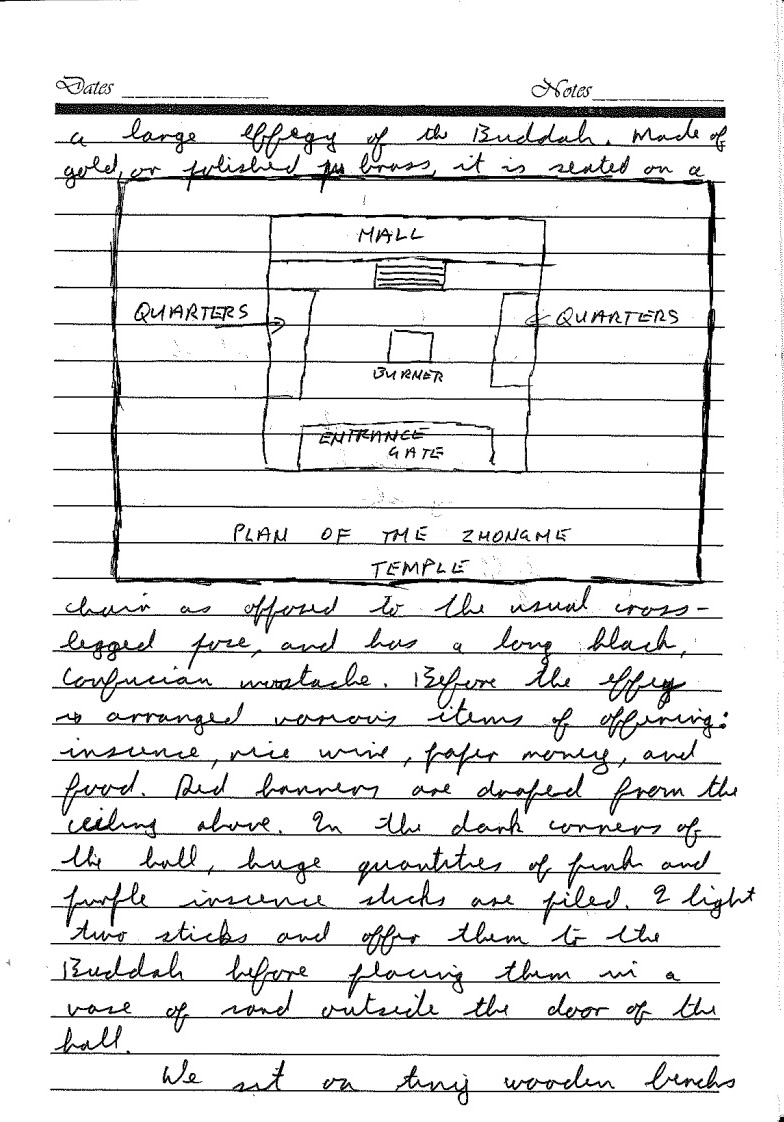 Dates Notes
a large effegy of the Buddah. Made of
gold, or polished brass, it is seated on a
HALL
QUARTERS QUARTERS
BURNER
ENTRANCE
GATE
PLAN OF THE ZHONGHE
TEMPLE
chair as opposed to the usual cross-
legged pose, and has a long black,
Confucian mostache. Before the effegy
is arranged various items of offering:
inscence, rice wine, paper money, and
food. Red banners are draped from the
ceiling above. In the dark corners of
the hall, huge quantities of pink and
purple inscence sticks are piled. I light
two sticks and offer them to the
Buddah before placing them in a
vase of sand outside the door of the
hall.
We sit on tiny wooden benchs